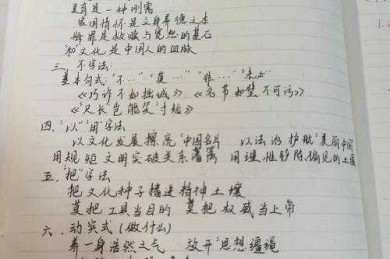 美育是一种刚需
家国情怀是立身养德之本
"和"文化是中国人的血脉
三、不字法
基本句式："不…""莫…""非…""未必"
《巧诈不如拙诚》 《名节如璧不可污》
《"尺长"岂能笑"寸短"》
四、"以""用"字法
以文化发展擦亮"中国名片" 以法治护航"美丽中国"
用规矩文明突破关系藩篱 用理性铲除偏见的土壤
五、"把"字法
把文化种子播进精神土壤
莫把工具当目的 莫把权威当上帝
六、动宾式（做什么）
养一身浩然之气 放开"思想缰绳"